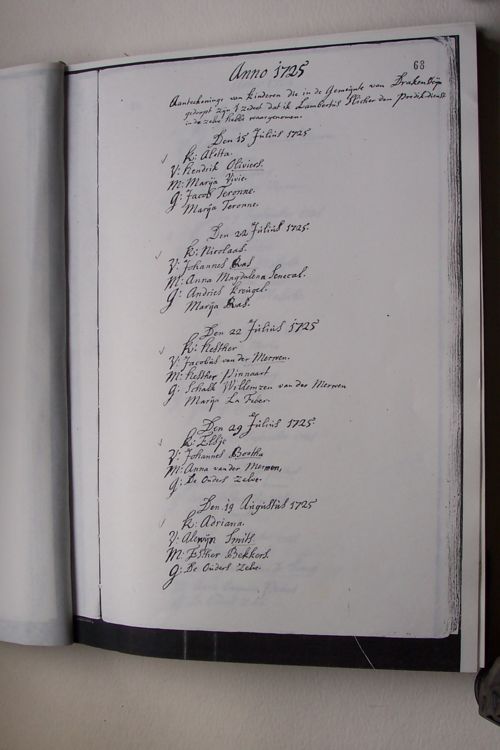 68
Anno 1725
Aanteekeninge van kinderen die in de Gemeijnte van Drakensteijn
gedoopt zijn t zedert dat ik Lambertus Slicher den Predikdienst
in de zelve hebbe waargenomen.
Den 15 Julius 1725
K: Aletta.
V: Hendrik Oliviers.
M: Marija Vivie.
G: Jacob Teronne.
Marija Teronne.
Den 22 Julius 1725.
K: Nicolaas.
V: Johannes Ras
M: Anna Magdalena Senecal.
G: Andries Kreugel.
Marija Ras.
Den 22 Julius 1725
K: Hester
V: Jacobus van der Merwen.
M: Hesther Pinnaart
G: Schalk Willemzen van der Merwen
Marija La Feber.
Den 29 Julius 1725.
K: Elsje
V: Johannes Bootha
M: Anna van der Merwen,
G: De Ouders Zelve.
Den 19 Augustus 1725
K: Adriana.
V: Alewijn Smits
M: Esther Bekkers.
G: De Ouders Zelve.